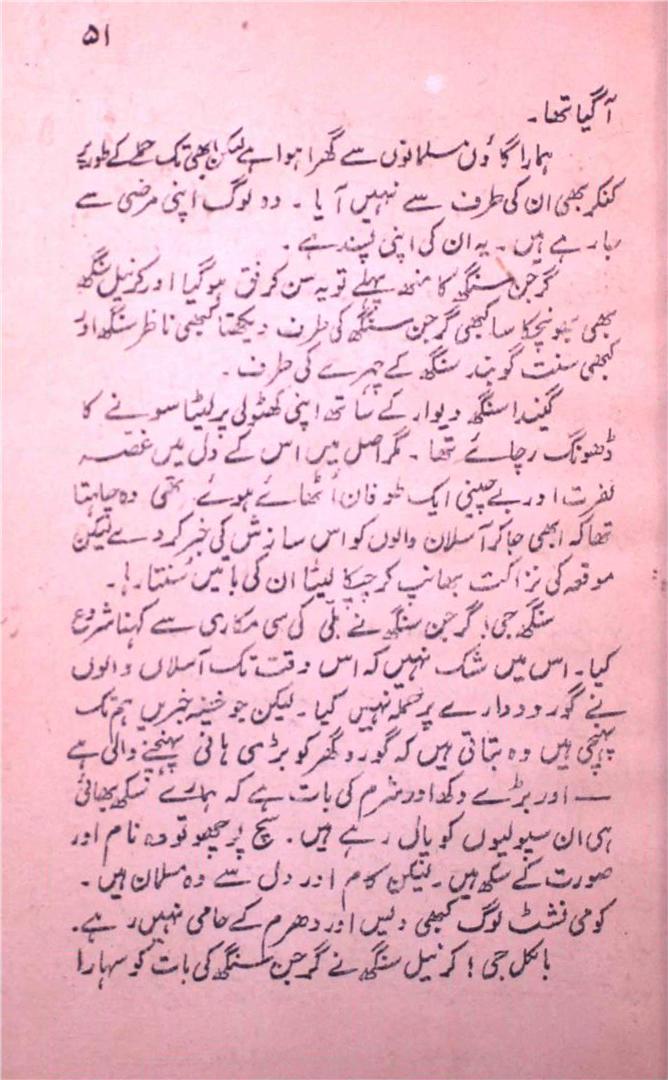 ۵۱
آ گیا تھا۔
ہمارا گاؤں مسلمانوں سے گھرا ہوا ہے لیکن ابھی تک حملے کے طور پر
کنکر بھی ان کی طرف سے نہیں آیا۔ وہ لوگ اپنی مرضی سے
جا رہے ہیں۔ یہ ان کی اپنی پسند ہے۔
گرجن سنگھ کا منھ پہلے تو یہ سن کر فق ہو گیا اور کرنیل سنگھ
بھی بھونچکا سا کبھی گرجن سنگھ کی طرف دیکھتا کبھی ناظر سنگھ اور
کبھی سنت گوبند سنگھ کے چہرے کی طرف۔
گیندا سنگھ دیوار کے ساتھ اپنی کھٹولی پر لیٹا سونے کا
ڈھونگ رچائے تھا۔ مگر اصل میں اس کے دل میں غصہ
نفرت اور بے چینی ایک طوفان اٹھائے ہوئے تھی وہ چاہتا
تھا کہ ابھی جا کر آسلان والوں کو اس سازش کی خبر کر دے لیکن
موقعہ کی نزاکت بھانپ کر چپکا لیٹا ان کی باتیں سُنتا رہا۔
سنگھ جی! گرجن سنگھ نے بلّی کی سی مکاری سے کہنا شروع
کیا۔ اس میں شک نہیں کہ اس وقت تک آسلاں والوں
نے گورودوارے پر حملہ نہیں کیا۔ لیکن جو خفیہ خبریں ہم تک
پہنچی ہیں وہ بتاتی ہیں کہ گورو گھر کو بڑی ہانی پہنچنے والی ہے
— اور بڑے دکھ اور شرم کی بات ہے کہ ہمارے سکھ بھائی
ہی ان سپولیوں کو پال رہے ہیں۔ سچ پوچھو تو وہ نام اور
صورت کے سکھ ہیں۔ لیکن کام اور دل سے وہ مسلمان ہیں۔
کومی نشٹ لوگ کبھی دیس اور دھرم کے حامی نہیں رہے۔
بالکل جی! کرنیل سنگھ نے گرجن سنگھ کی بات کو سہارا